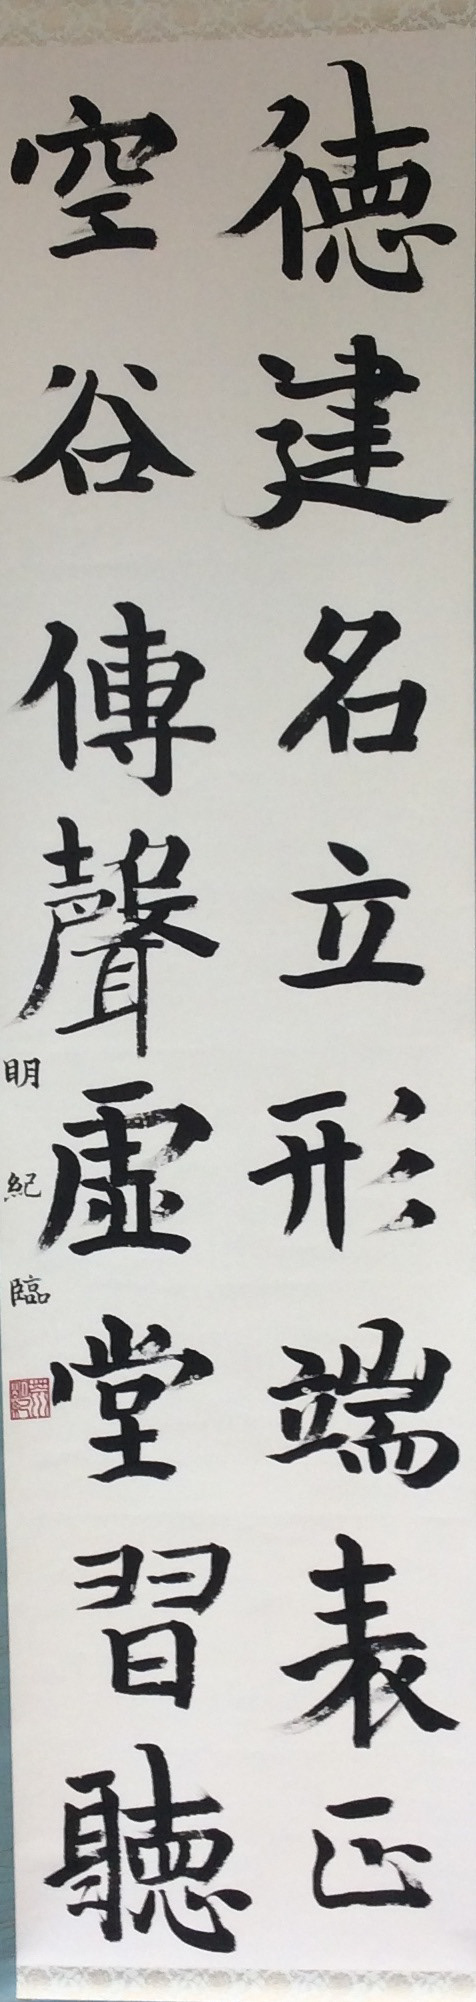 徳建名立形端表正
空谷傳聲虛堂習聽
明紀臨